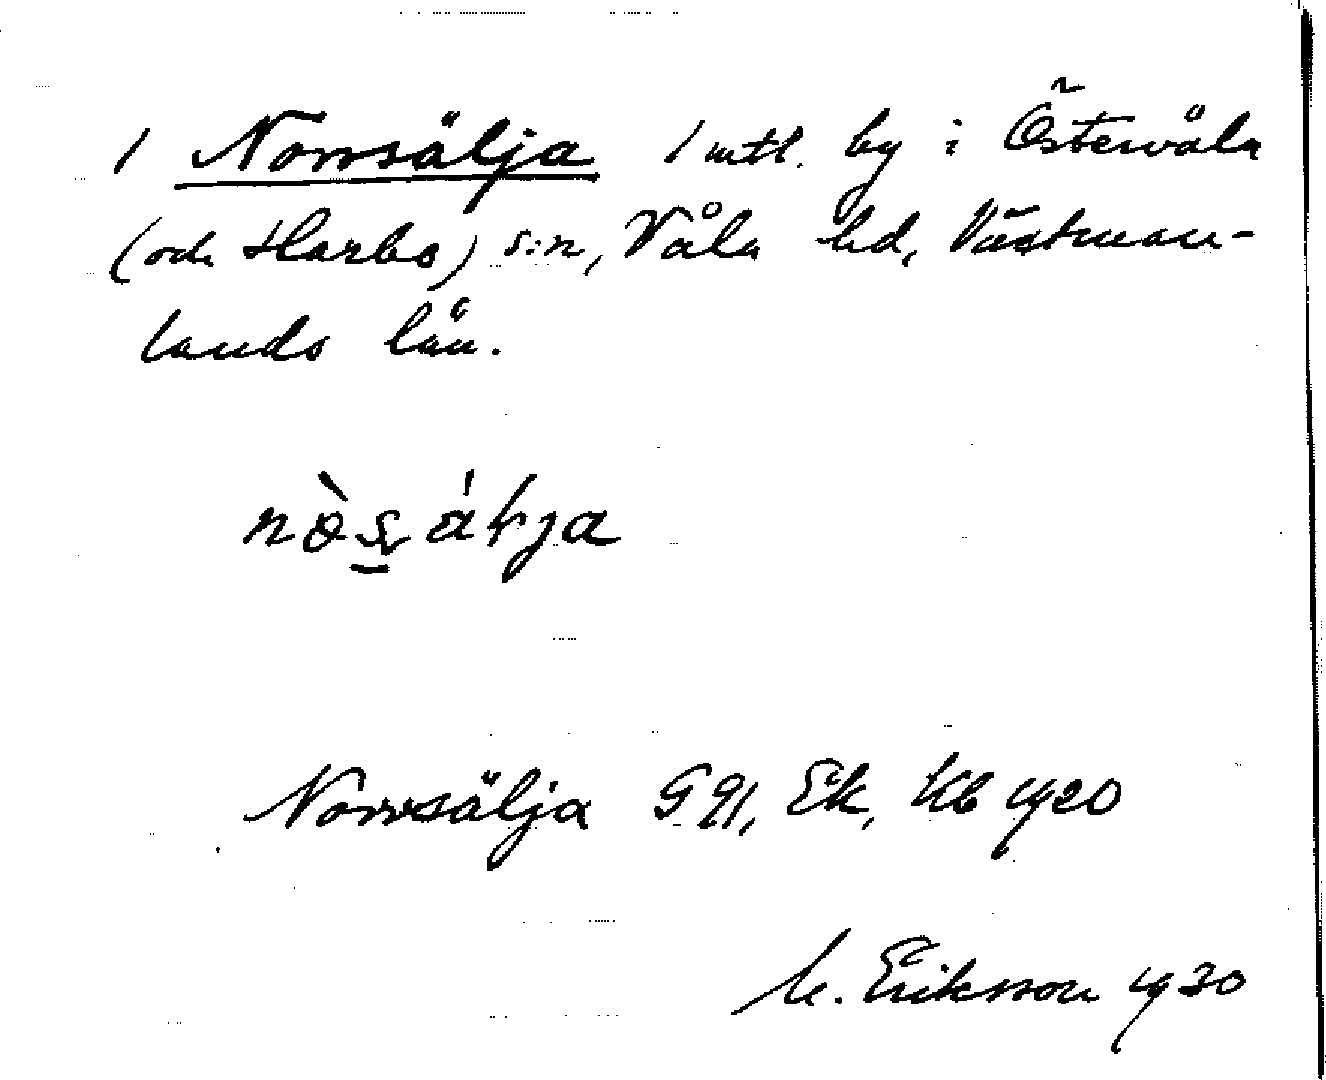 1 Norrsälja 1 mtl. by i Östervåla
(och Harbo) s:n, Våla hd, Västman-
lands län.
Norrsälja GU, Ek, Kb 1920
M. Eriksson 1930